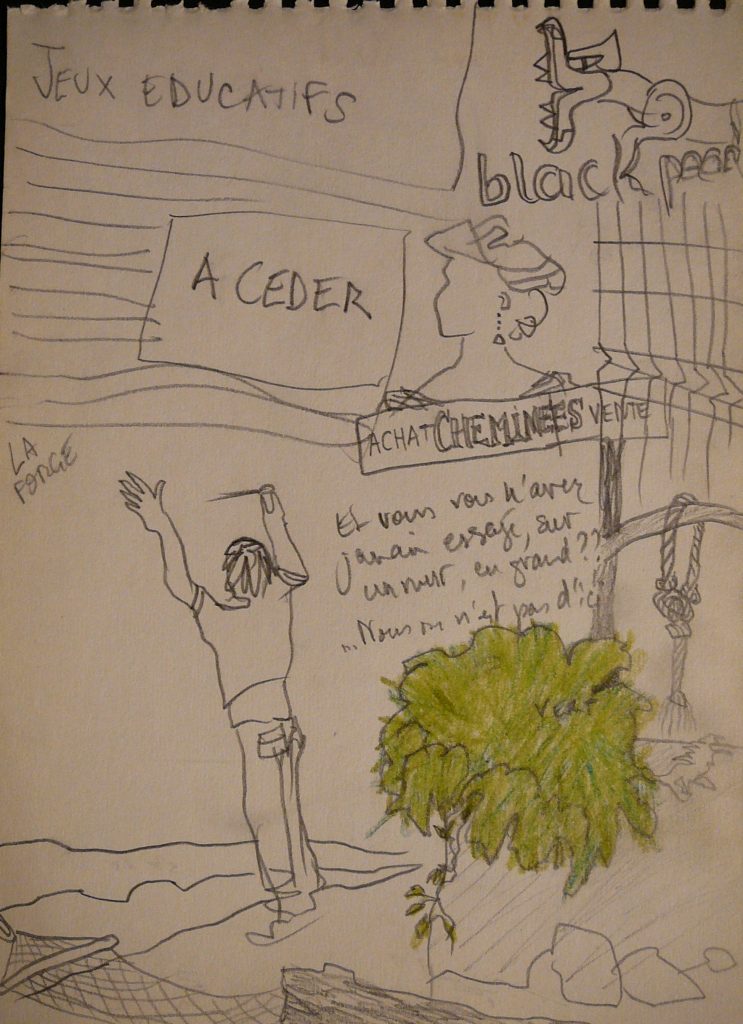 JEUX EDUCATIFS
black pear
A CEDER
ACHAT CHEMINEES VENTE
LA
FORGE
Et vous vous n'avez
jamais essayé, sur
un mur, en grand??
... Nous on n'est pas d'ici
vert